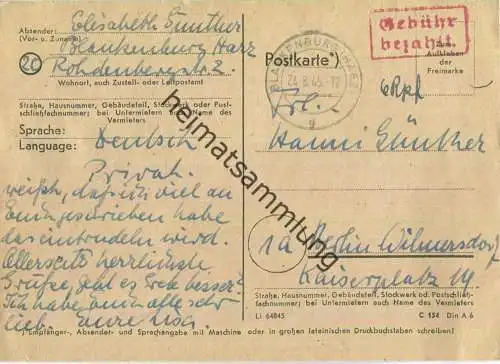 Absender:
(Vor- u. Zuname)
Elisabeth Günther
Blankenburg Harz
Rohdenbergstr. 2
Wohnort, auch Zustell- oder Leitpostamt
Straße, Hausnummer, Gebäudeteil, Stockwerk oder Post-
schließfachnummer; bei Untermietern auch Name des
Vermieters
Sprache:
Language:
Deutsch
Privat.
weißt, daß ich viel an
Euch geschrieben habe
das eintrudeln wird.
Allerseits herzlichste
Grüße, geht es Grete besser?
Ich habe Euch alle sehr
lieb. Eure
Empfänger-, Absender- und Sprachangabe mit Maschine oder in großen lateinischen Druckbuchstaben schreiben!
Postkarte
BLANKENBURG (HARZ)
24.8.45.-12
g
Gebühr
bezahlt
Zum
Aufkleben
der
Freimarke
6 Rpf
Frl.
Hanni Günther
1a Berlin Wilmersdorf
Kaiserplatz 14
Straße, Hausnummer, Gebäudeteil, Stockwerk od. Postschließ-
fachnummer; bei Untermietern auch Name des Vermieters
Li 64845 C 154 Din A 6
heimatsammlung